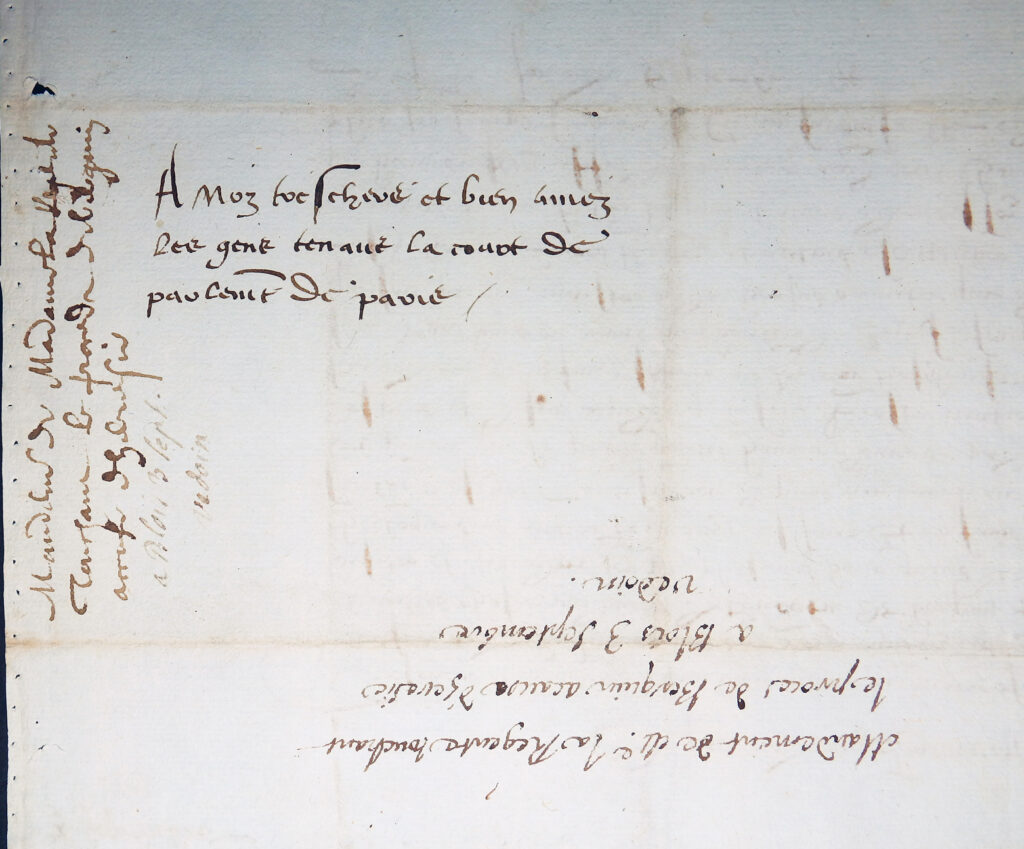 A Noz treschers et bien amez
les gens tenans la court de
parlemt de paris
Mandemt de Madame la Regente
Touchant le proces de berquin
accuse dheresie
a Blois 3 sept.
vedoin
Mandement de Me la Regente touchant
le proces de Berquin acause d'heresie
a Blois 3 septembre
vedoin.